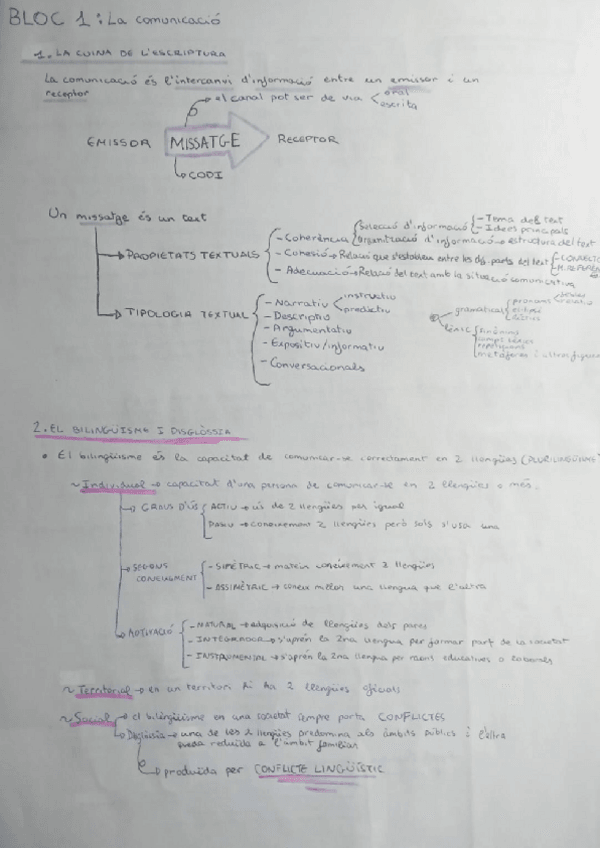 BLOC 1: La comunicació
1. LA CUINA DE L'ESCRIPTURA
La comunicació és l'intercanvi d'informació entre un emissor i un
receptor
el canal pot ser de via < oral
escrita
EMISSOR MISSATGE RECEPTOR
CODI
Un missatge és un text
PROPIETATS TEXTUALS
- Coherència
Selecció d'informació
- Tema del text
- Idees principals
Organització d'informació → estructura del text
- Cohesió → Relació que s'estableix entre les dif. parts del text
- Adequació → Relació del text amb la situació comunicativa
TIPOLOGIA TEXTUAL
- Narratiu
instructiu
predictiu
- Descriptiu
- Argumentatiu
- Expositiu/informatiu
- Conversacionals
gramatical
pronoms
el·lipsi
lèxic
sinònims
metàfores i altres figures
2. EL BILINGÜISME I DISGLÒSSIA
• El bilingüisme és la capacitat de comunicar-se correctament en 2 llengües (PLURILINGÜISME
~ Individual → capacitat d'una persona de comunicar-se en 2 llengües o més.
→ GRAUS D'ÚS
ACTIU → ús de 2 llengües per igual
PASSIU → coneixement 2 llengües però sols s'usa una
→ SEGONS CONEIXEMENT
- SIMÈTRIC → mateix coneixement 2 llengües
- ASSIMÈTRIC → coneix millor una llengua que l'altra
→ MOTIVACIÓ
- NATURAL → adquisició de llengües dels pares
- INTEGRADOR → s'aprén la 2na llengua per formar part de la societat
- INSTRUMENTAL → s'aprén la 2na llengua per raons educatives o laborals
~ Territorial → en un territori hi ha 2 llengües oficials
~ Social → el bilingüisme en una societat sempre porta CONFLICTES
→ Disglòssia → una de les 2 llengües predomina als àmbits públics i l'altra
queda reduïda a l'àmbit familiar
→ produïda per CONFLICTE LINGÜÍSTIC